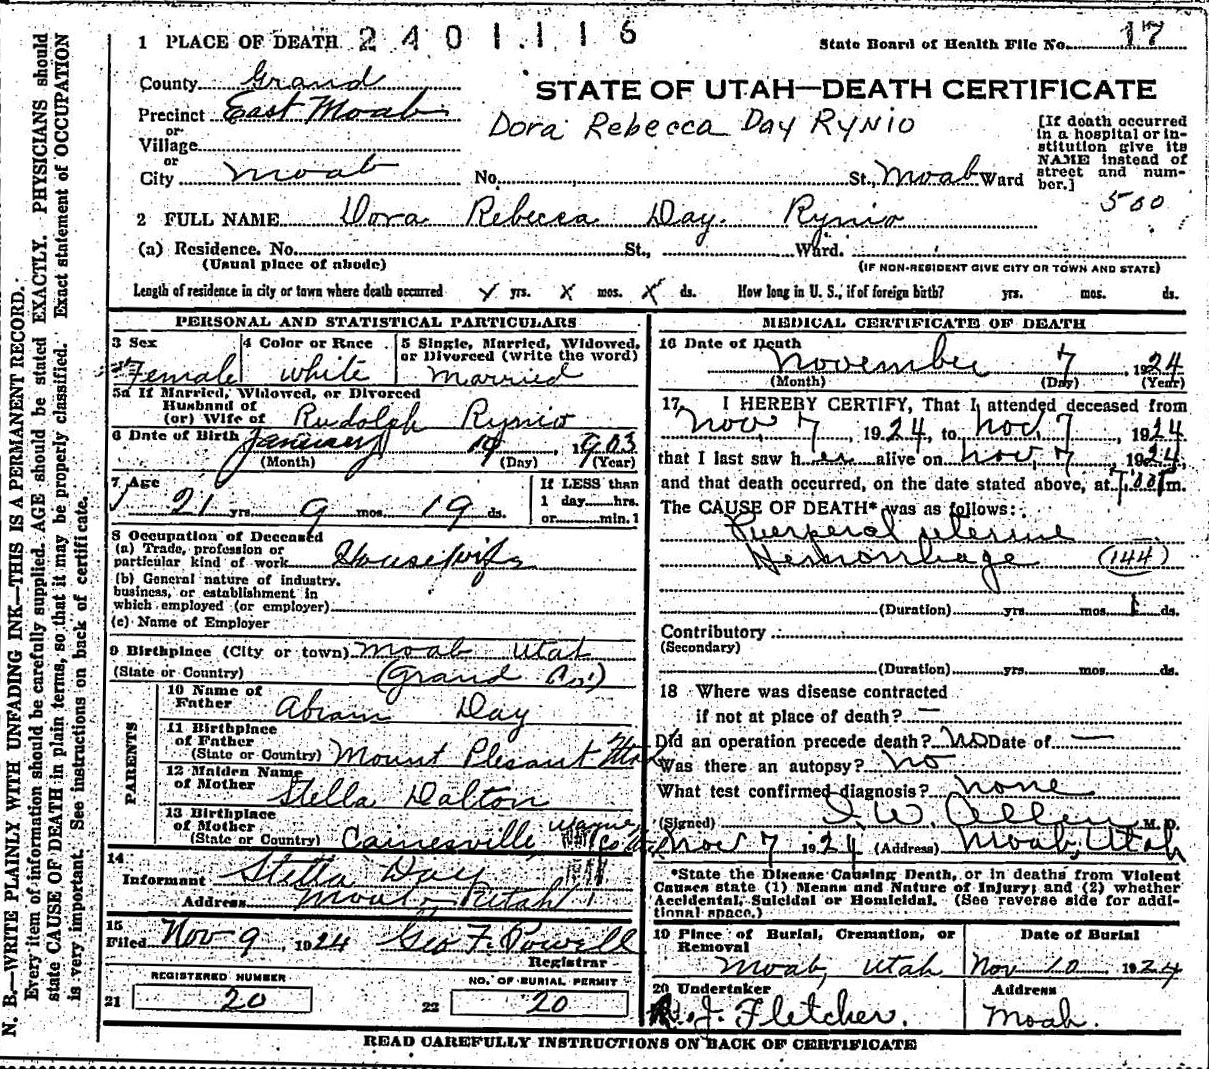 1 PLACE OF DEATH 2401116
State Board of Health File No. 17
County Grand
STATE OF UTAH—DEATH CERTIFICATE
Precinct East Moab
Dora Rebecca Day Rynio
or
Village
or
City Moab No. St., Moab Ward
[If death occurred
in a hospital or in-
stitution give its
NAME instead of
street and num-
ber.]
500
2 FULL NAME Dora Rebecca Day. Rynio
(a) Residence. No. St., Ward.
(Usual place of abode) (IF NON-RESIDENT GIVE CITY OR TOWN AND STATE)
Length of residence in city or town where death occurred X yrs. X mos. X ds. How long in U. S., if of foreign birth? yrs. mos. ds.
PERSONAL AND STATISTICAL PARTICULARS
3 Sex 4 Color or Race 5 Single, Married, Widowed,
or Divorced (write the word)
Female white Married
5a If Married, Widowed, or Divorced
Husband of
(or) Wife of Rudolph Rynio
6 Date of Birth January 19, 1903
(Month) (Day) (Year)
7 Age If LESS than
21 yrs. 9 mos. 19 ds. 1 day hrs.
or min.
8 Occupation of Deceased
(a) Trade, profession or
particular kind of work Housewife
(b) General nature of industry,
business, or establishment in
which employed (or employer)
(c) Name of Employer
9 Birthplace (City or town) Moab Utah
(State or Country) (Grand Co.)
PARENTS
10 Name of
Father Abram Day
11 Birthplace
of Father
(State or Country) Mount Plesant Utah
12 Maiden Name
of Mother Stella Dalton
13 Birthplace
of Mother
(State or Country) Cainesville, Wayne Co
14
Informant Stella Day
Address Moab, Utah
15
Filed Nov 9 1924 Geo F. Powell
Registrar
REGISTERED NUMBER NO. OF BURIAL PERMIT
21 20 22 20
MEDICAL CERTIFICATE OF DEATH
16 Date of Death
November 7, 1924
(Month) (Day) (Year)
17, I HEREBY CERTIFY, That I attended deceased from
Nov, 7, 1924, to Nov, 7, 1924
that I last saw her alive on Nov, 7, 1924,
and that death occurred, on the date stated above, at m.
The CAUSE OF DEATH* was as follows:
Puerperal uterine
Hemorrhage (144)
(Duration) yrs. mos. 1 ds.
Contributory
(Secondary)
(Duration) yrs. mos. ds.
18 Where was disease contracted
if not at place of death? —
Did an operation precede death? No Date of —
Was there an autopsy? No
What test confirmed diagnosis? none
(Signed) I. W. Allen M. D.
Nov 7 1924 (Address) Moab, Utah
*State the Disease Causing Death, or in deaths from Violent
Causes state (1) Means and Nature of Injury; and (2) whether
Accidental, Suicidal or Homicidal. (See reverse side for addi-
tional space.)
19 Place of Burial, Cremation, or Date of Burial
Removal
Moab, Utah Nov 10 1924
20 Undertaker Address
J. Fletcher. Moab.
READ CAREFULLY INSTRUCTIONS ON BACK OF CERTIFICATE
N. B.—WRITE PLAINLY WITH UNFADING INK—THIS IS A PERMANENT RECORD.
Every item of information should be carefully supplied. AGE should be stated EXACTLY. PHYSICIANS should
state CAUSE OF DEATH in plain terms, so that it may be properly classified. Exact statement of OCCUPATION
is very important. See instructions on back of certificate.